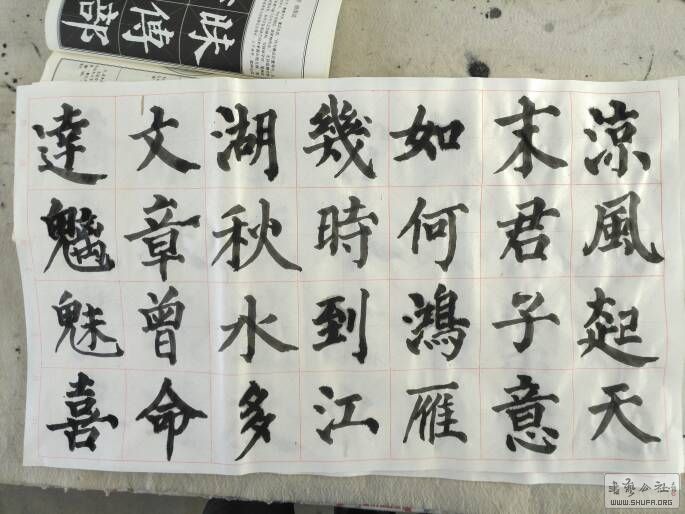 涼風起天
末君子意
如何鴻雁
幾時到江
湖秋水多
文章曾命
達魑魅喜
昧
傳
部
WWW.SHUFA.ORG